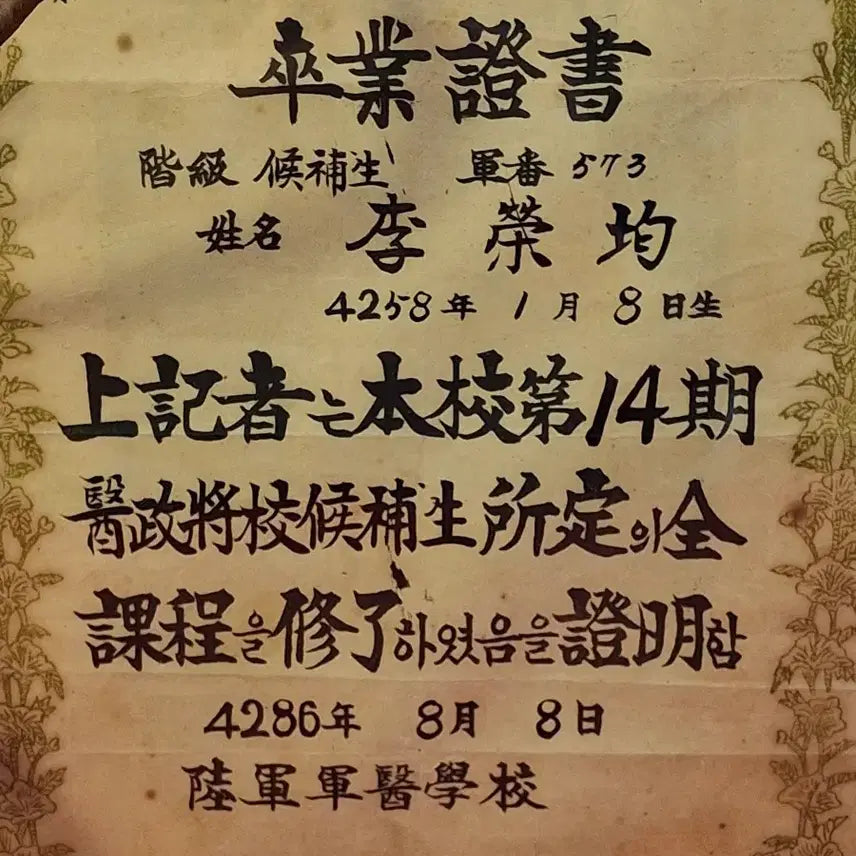 卒業證書
階級 候補生 軍番 573
姓名 李榮均
4258年 1月 8日生
上記者는本校第14期
醫政將校候補生所定의全
課程을修了하였음을證明함
4286年 8月 8日
陸軍軍醫學校